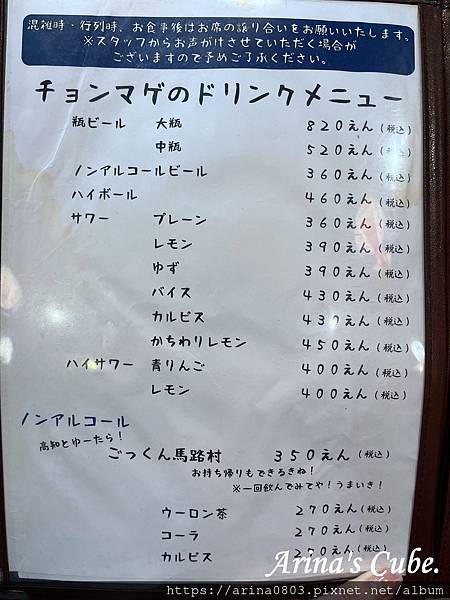 混雑時・行列時、お食事後はお席の譲り合いをお願いいたします。
※スタッフからお声がけさせていただく場合が
ございますので予めご了承ください。
チョンマゲのドリンクメニュー
瓶ビール 大瓶 820えん(税込)
中瓶 520えん(税込)
ノンアルコールビール 360えん(税込)
ハイボール 460えん(税込)
サワー プレーン 360えん(税込)
レモン 390えん(税込)
ゆず 390えん(税込)
バイス 430えん(税込)
カルピス 430えん(税込)
かちわりレモン 450えん(税込)
ハイサワー 青りんご 400えん(税込)
レモン 400えん(税込)
ノンアルコール
高知とゆーたら!
ごっくん馬路村 350えん(税込)
お持ち帰りもできるきね!
※一回飲んでみてや!うまいき!
ウーロン茶 270えん(税込)
コーラ 270えん(税込)
カルピス 270えん(税込)
Arina's Cube.
https://arina0803.pixnet.net/album